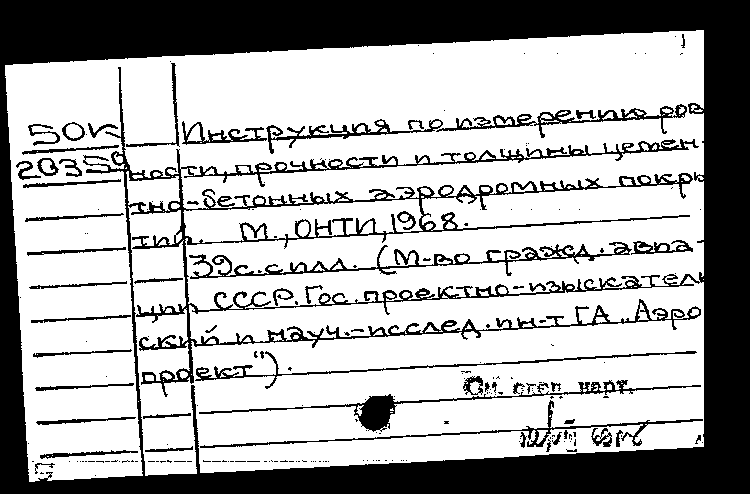 50к
20359
Инструкция по измерению ров
ности, прочности и толщины цемен-
тно-бетонных аэродромных покры
тий. М., ОНТИ, 1968.
39с. с илл. (М-во гражд. авиа-
ции СССР. Гос. проектно-изыскатель
ский и науч.-исслед. ин-т ГА „Аэро
проект").
См. карт.